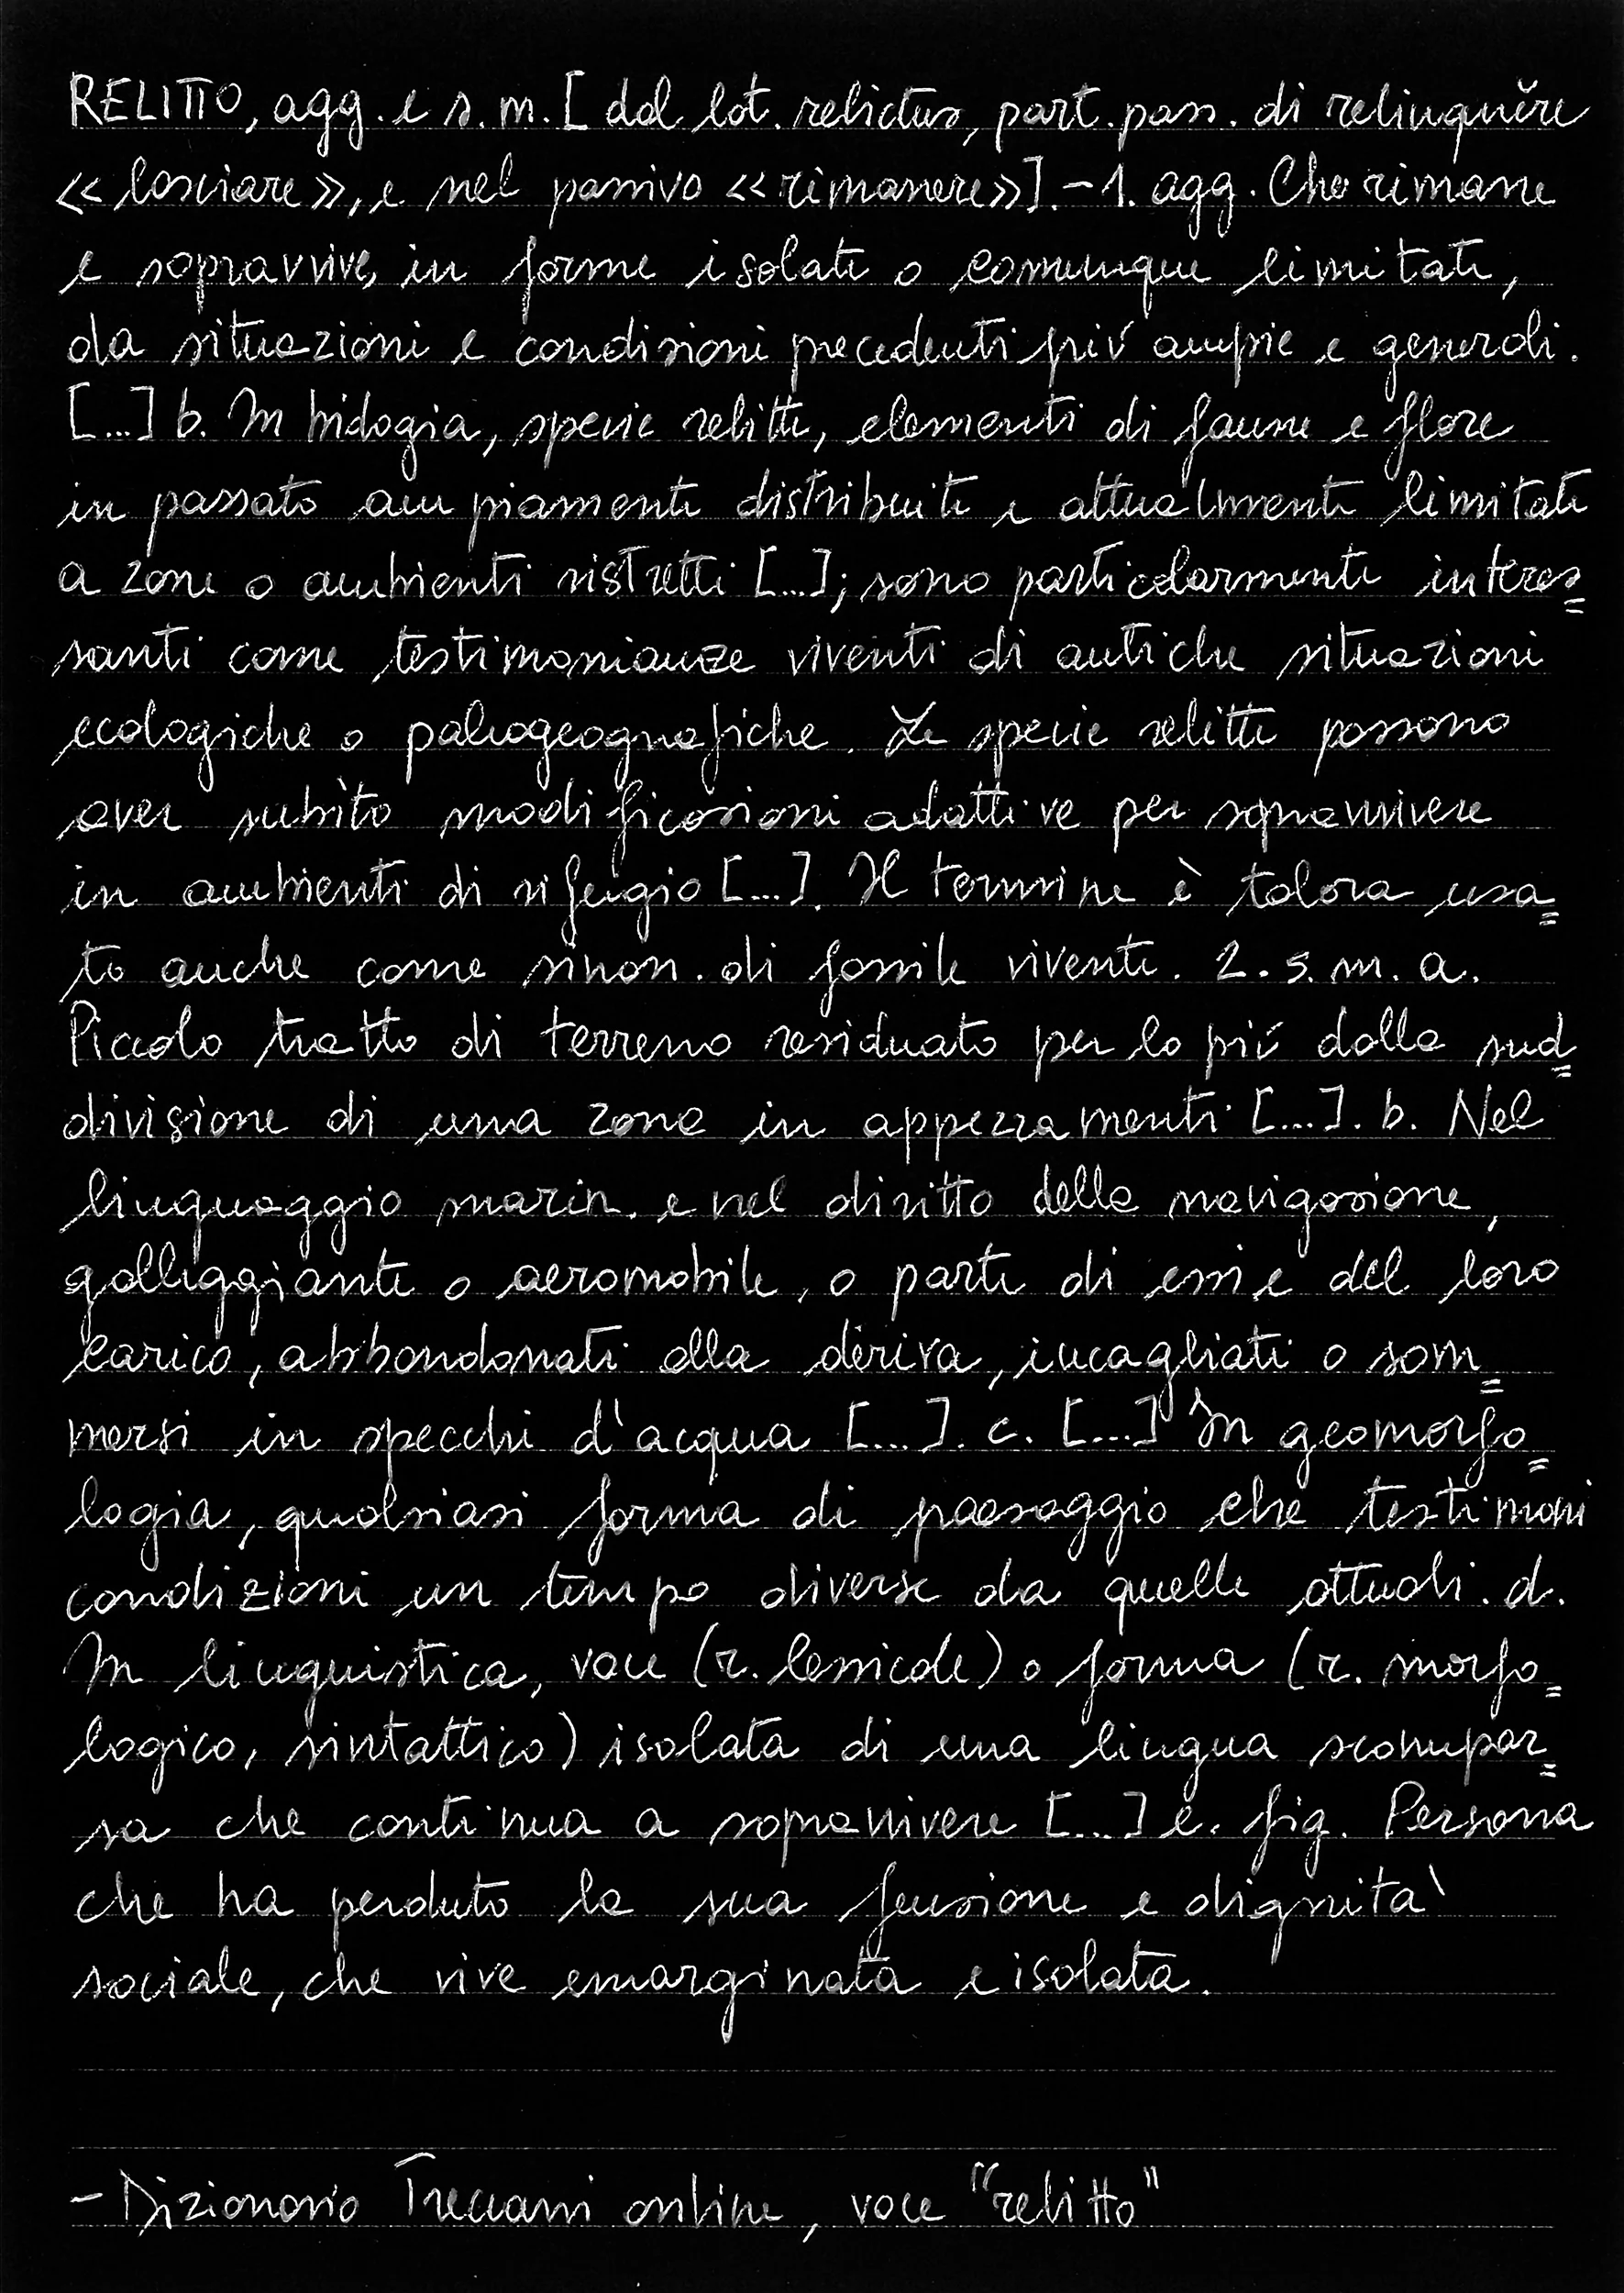 RELITTO, agg. e s. m. [dal lat. relictus, part. pass. di relinquĕre
«lasciare», e nel passivo «rimanere»]. - 1. agg. Che rimane
e sopravvive, in forme isolate o comunque limitate,
da situazioni e condizioni precedenti più ampie e generali.
[...] b. In biologia, specie relitte, elementi di faune e flore
in passato ampiamente distribuite e attualmente limitate
a zone o ambienti ristretti [...]; sono particolarmente interes=
santi come testimonianze viventi di antiche situazioni
ecologiche o paleogeografiche. Le specie relitte possono
aver subìto modificazioni adattive per sopravvivere
in ambienti di rifugio [...]. Il termine è talora usa=
to anche come sinon. di fossile vivente. 2. s. m. a.
Piccolo tratto di terreno residuato per lo più dalla sud=
divisione di una zona in appezzamenti [...]. b. Nel
linguaggio marin. e nel diritto della navigazione,
galleggiante o aeromobile, o parte di essi e del loro
carico, abbandonati alla deriva, incagliati o som=
mersi in specchi d'acqua [...]. c. [...] In geomorfo=
logia, qualsiasi forma di paesaggio che testimoni
condizioni un tempo diverse da quelle attuali. d.
In linguistica, voce (r. lessicale) o forma (r. morfo=
logico, sintattico) isolata di una lingua scompar=
sa che continua a sopravvivere [...] e. fig. Persona
che ha perduto la sua funzione e dignità
sociale, che vive emarginata e isolata.
- Dizionario Treccani online, voce "relitto"